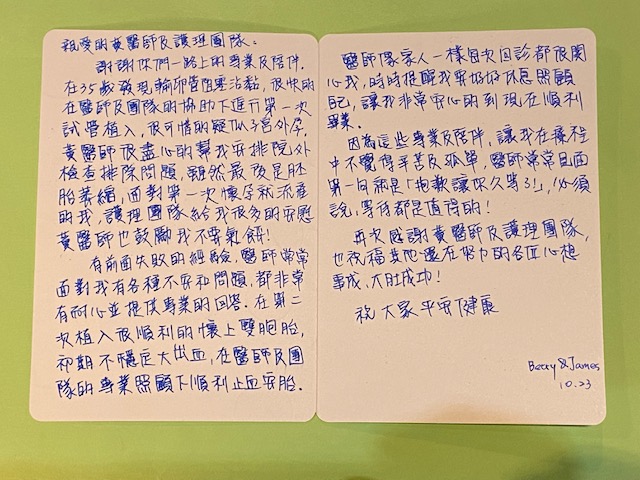 親愛的黃醫師及護理團隊：
謝謝你們一路上的專業及陪伴.
在35歲發現輸卵管阻塞沾黏, 很快的
在醫師及團隊的協助下進行第一次
試管植入, 很可惜的疑似子宮外孕,
黃醫師很盡心的幫我安排院外
檢查排除問題, 雖然最後是胚
胎萎縮, 面對第一次懷孕就流產
的我, 護理團隊給我很多的安慰
黃醫師也鼓勵我不要氣餒!
有前面失敗的經驗, 醫師常常
面對我有各種不安和問題, 都非常
有耐心並提供專業的回答. 在第二
次植入很順利的懷上雙胞胎,
初期不穩定大出血, 在醫師及團
隊的專業照顧下順利止血安胎.
醫師像家人一樣每次回診都很關
心我, 時時提醒我要好好休息照顧
自己, 讓我非常安心的到現在順利
畢業.
因為這些專業及陪伴, 讓我在療程
中不覺得辛苦及孤單, 醫師常常見面
第一句就是「抱歉讓你久等了!」, 必須
說, 等待都是值得的!
再次感謝黃醫師及護理團隊,
也祝福其他還在努力的各位心想
事成, 大肚成功!
祝 大家 平安健康
&James
10.23